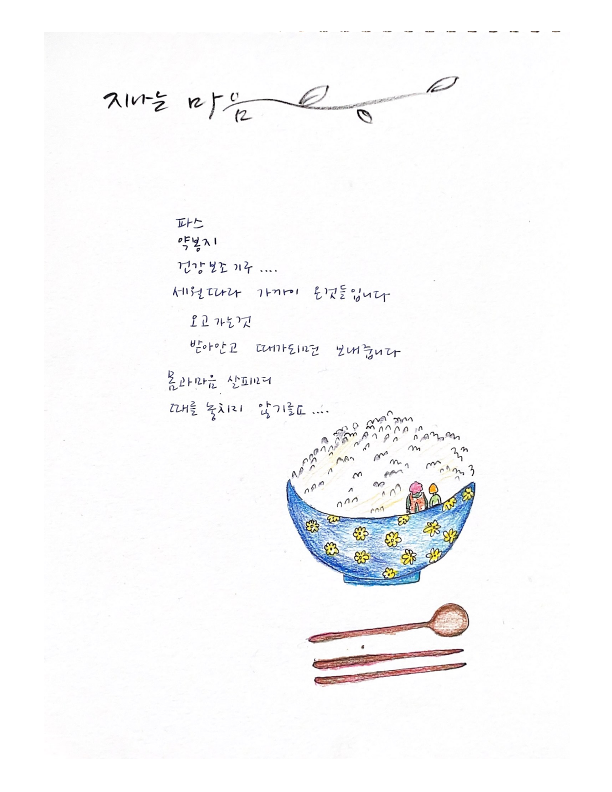 지나는 마음
파스
약봉지
건강보조기구 ....
세월따라 가까이 온것들입니다
오고가는것
받아안고 때가되면 보내줍니다
몸과마음 살피며
때를 놓치지 않기를요 ....